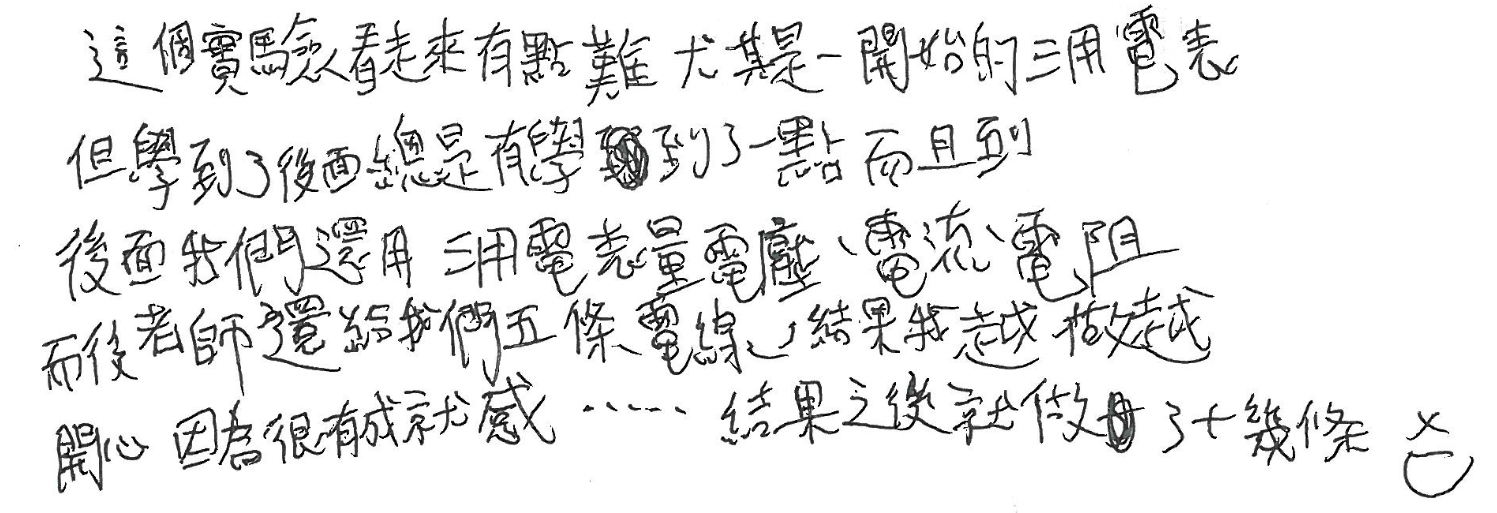 這個實驗看走來有點難 尤其是一開始的三用電表
但學到了後面總是有學到了一點 而且到
後面我們還用 三用電表量電壓、電流、電阻
而後老師還給我們五條電線,結果我越做越
開心 因為很有成就感 ⋯⋯ 結果之後就做了十幾條